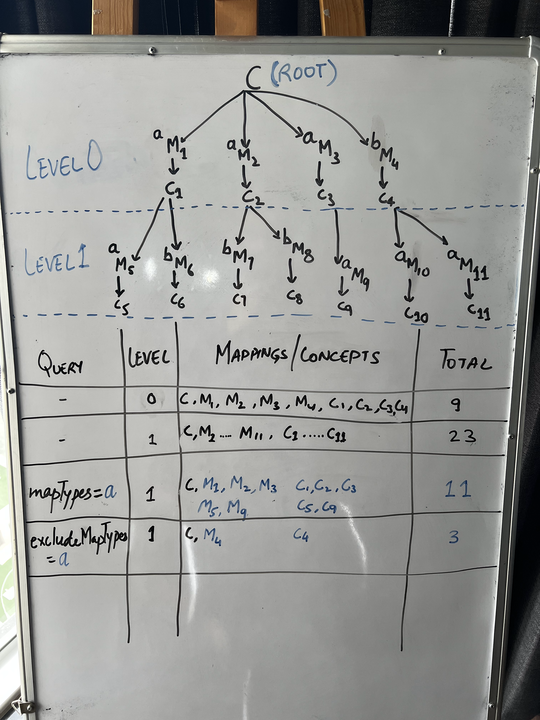 C (ROOT)
LEVEL 0
a M1 a M2 a M3 b M4
C1 C2 C3 C4
LEVEL 1
a M5 b M6 b M7 b M8 a M9 a M10 a M11
C5 C6 C7 C8 C9 C10 C11
QUERY LEVEL MAPPINGS/CONCEPTS TOTAL
- 0 C, M1, M2, M3, M4, C1, C2, C3, C4 9
- 1 C, M1 .... M11, C1 ..... C11 23
mapTypes=a 1 C, M1, M2, M3 C1, C2, C3 11
M5, M9 C5, C9
excludeMapTypes 1 C, M4 C4 3
=a